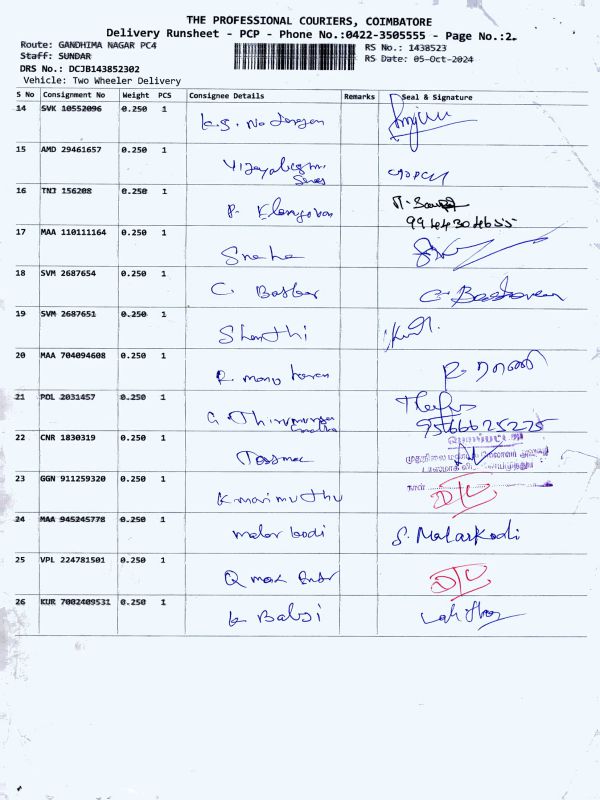 THE PROFESSIONAL COURIERS, COIMBATORE
Delivery Runsheet - PCP - Phone No.:0422-3505555 - Page No.:2.
Route: GANDHIMA NAGAR PC4
RS No.: 1438523
Staff: SUNDAR
RS Date: 05-Oct-2024
DRS No.: DCJB143852302
Vehicle: Two Wheeler Delivery
S No Consignment No Weight PCS Consignee Details Remarks Seal & Signature
14 SVK 10552096 0.250 1
15 AMD 29461657 0.250 1
16 TNJ 156208 0.250 1
9944304655
17 MAA 110111164 0.250 1 Sneha
18 SVM 2687654 0.250 1 C. Baskar
19 SVM 2687651 0.250 1 Shanthi
20 MAA 704094608 0.250 1 R. mano haran
21 POL 2031457 0.250 1
9566625225
22 CNR 1830319 0.250 1 Tasmac
23 GGN 911259320 0.250 1 K marimuthu D/L
24 MAA 945245778 0.250 1 malar kodi S. Malarkodi
25 VPL 224781501 0.250 1 D/L
26 KUR 7002409531 0.250 1 K Balaji